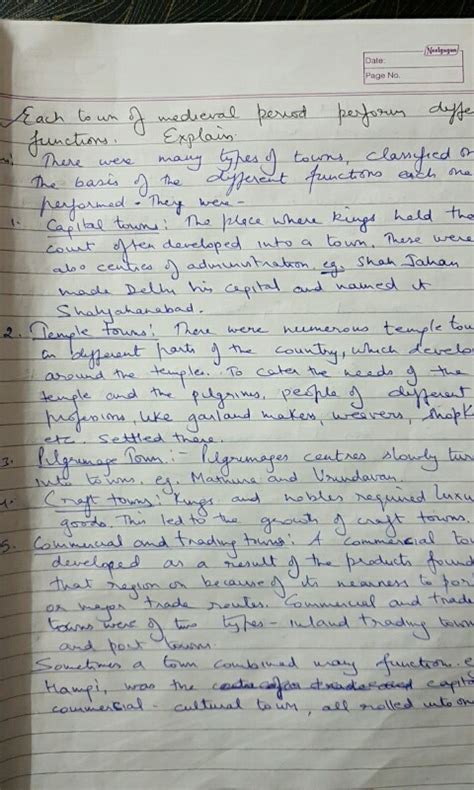 Neelgagan
Date:
Page No.
Each town of medieval period perform diffe
functions. Explain
There were many types of towns, classified on
the basis of the different functions each one
performed - They were -
1. Capital towns: The place where kings held the
court often developed into a town. These were
also centres of administration. eg. Shah Jahan
made Delhi his capital and named it
Shahjahanabad.
2. Temple towns: There were numerous temple tow
in different parts of the country, which develo
around the temples. To cater the needs of the
temple and the pilgrims, people of different
professions, like garland makers, weavers, shopk
etc. settled there.
3. Pilgrimage Town:- Pilgrimages centres slowly tur
into towns. eg. Mathura and Vrindavan
4. Craft towns: Kings and nobles required luxu
goods. This led to the growth of craft towns
5. Commercial and trading towns: A commercial to
developed as a result of the products found
that region or because of its nearness to por
or major trade routes. Commercial and trade
towns were of two types - inland trading town
and port towns.
Sometimes a town combined many function. e
Hampi, was the capita
commercial - cultural town, all rolled into one